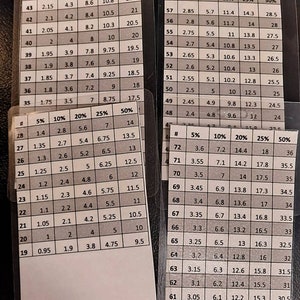 43 2.15 4.3 8.6 10.8
42 2.1 4.2 8.4 10.5 21
41 2.05 4.1 8.2 10.3 20.5
40 2 4 8 10 20
39 1.95 3.9 7.8 9.75 19.5
38 1.9 3.8 7.6 9.5 19
37 1.85 3.7 7.4 9.25 18.5
36 1.8 3.6 7.2 9 18
35 1.75 3.5 7 8.75 17.5
57 2.85 5.7 11.4 14.3 28.5
56 2.8 5.6 11.2 14 28
55 2.75 5.5 11 13.8 27.5
54 2.7 5.4 10.8 13.5 27
53 2.65 5.3 10.6 13.3 26.5
52 2.6 5.2 10.4 13 26
51 2.55 5.1 10.2 12.8 25.5
50 2.5 5 10 12.5 25
49 2.45 4.9 9.8 12.3 24.5
# 5% 10% 20% 25% 50%
28 1.4 2.8 5.6 7 14
27 1.35 2.7 5.4 6.75 13.5
26 1.3 2.6 5.2 6.5 13
25 1.25 2.5 5 6.25 12.5
24 1.2 2.4 4.8 6 12
23 1.15 2.3 4.6 5.75 11.5
22 1.1 2.2 4.4 5.5 11
21 1.05 2.1 4.2 5.25 10.5
20 1 2 4 5 10
19 0.95 1.9 3.8 4.75 9.5
# 5% 10% 20% 25% 50%
72 3.6 7.2 14.4 18 36
71 3.55 7.1 14.2 17.8 35.5
70 3.5 7 14 17.5 35
69 3.45 6.9 13.8 17.3 34.5
68 3.4 6.8 13.6 17 34
67 3.35 6.7 13.4 16.8 33.5
66 3.3 6.6 13.2 16.5 33
65 3.25 6.5 13 16.3 32.5
64 3.2 6.4 12.8 16 32
63 3.15 6.3 12.6 15.8 31.5
62 3.1 6.2 12.4 15.5 31
61 3.05 6.1 12.2 15.3 30.5